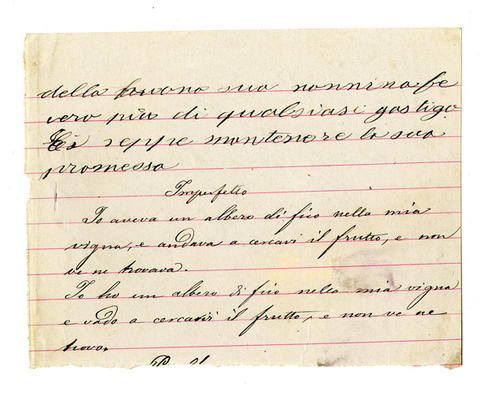 della buona sua nonnina fe
cero più di qualsiasi gastigo
Ei seppe mantenere la sua
promessa
Imperfetto
Io aveva un albero di fico nella mia
vigna, e andava a cercarvi il frutto, e non
ve ne trovava.
Io ho un albero di fico nella mia vigna
e vado a cercarvi il frutto, e non ve ne
trovo.